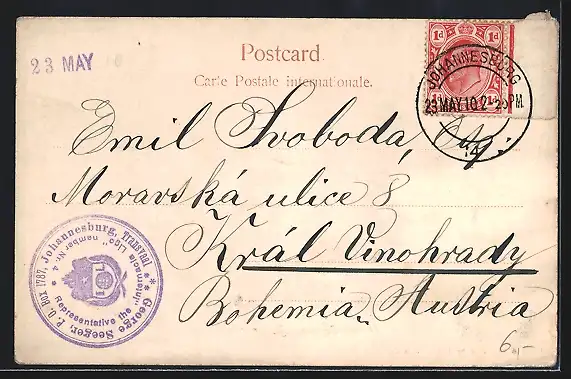 23 MAY 10
Postcard.
Carte Postale internationale.
1d 1d
JOHANNESBURG
23 MAY 10 2-25PM
14
Emil Svoboda, Esq:
Moravská ulice 8
Král Vinohrady
Bohemia, Austria
George Seeger, P. O. Box 1787, Johannesburg, Transvaal
Representative the „Internacia Ligo" number Nr. 4
6,-